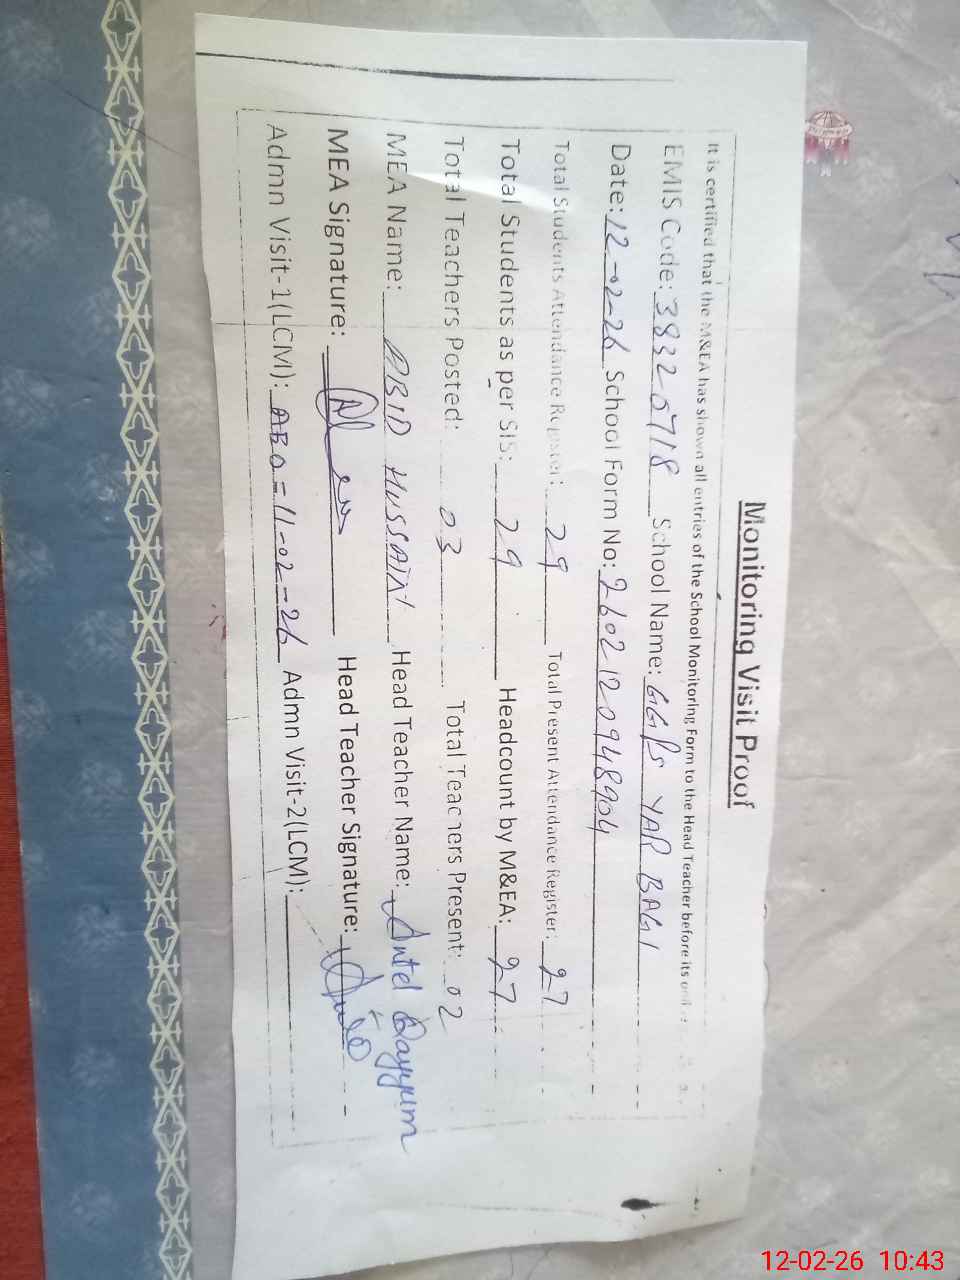 Monitoring Visit Proof
It is certified that the M&EA has shown all entries of the School Monitoring Form to the Head Teacher before its
EMIS Code: 38320718 School Name: GGPS YAR BAGI
Date: 12-02-26 School Form No: 2602120948904
Total Students Attendance Register: 29 Total Present Attendance Register: 27
Total Students as per SIS: 29 Headcount by M&EA: 27
Total Teachers Posted: 03 Total Teachers Present: 02
MEA Name: ABID HUSSAIN Head Teacher Name: Qayyum
MEA Signature: Head Teacher Signature:
Admn Visit-1(LCM): AEO = 11-02-26 Admn Visit-2(LCM):
12-02-26 10:43